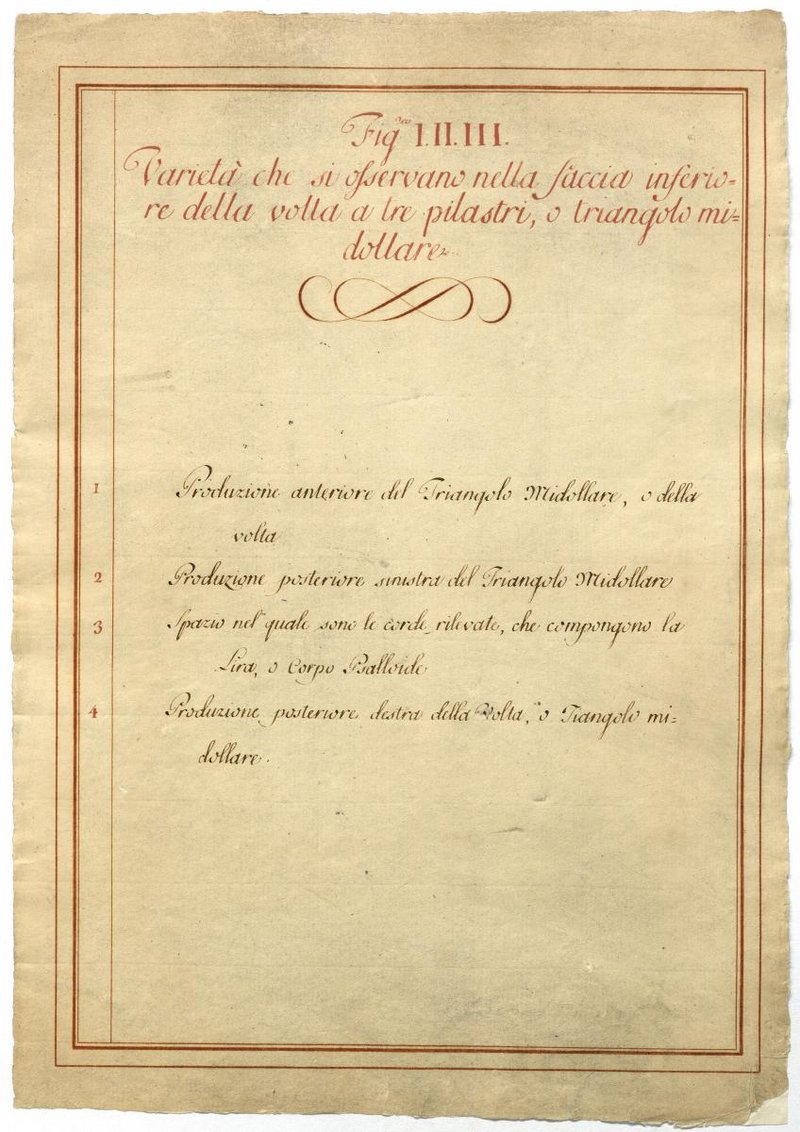 Fig.re I. II. III.
Varietà che si osservano nella faccia inferio=
re della volta a tre pilastri, o triangolo mi=
dollare
1 Produzione anteriore del Triangolo Midollare, o della
volta
2 Produzione posteriore sinistra del Triangolo Midollare
3 Spazio nel quale sono le corde rilevate, che compongono la
Lira, o Corpo Psalloide
4 Produzione posteriore destra della Volta, o Tiangolo mi=
dollare.